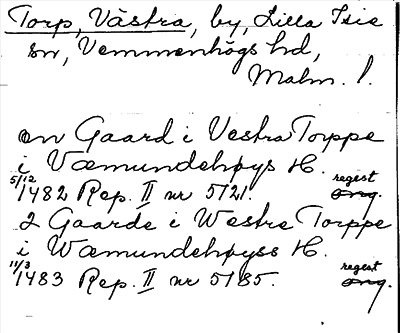 Torp, Västra, by, Lilla Isie
sn, Vemmenhögs hd,
Malm. l.
en Gaard i Vestra Torppe
i Væmundehøys H.
5/12 1482 Rep. II nr 5121. regest orig.
2 Gaarde i Westre Torppe
i Wæmundehøyss H.
11/3 1483 Rep. II nr 5185. regest orig.